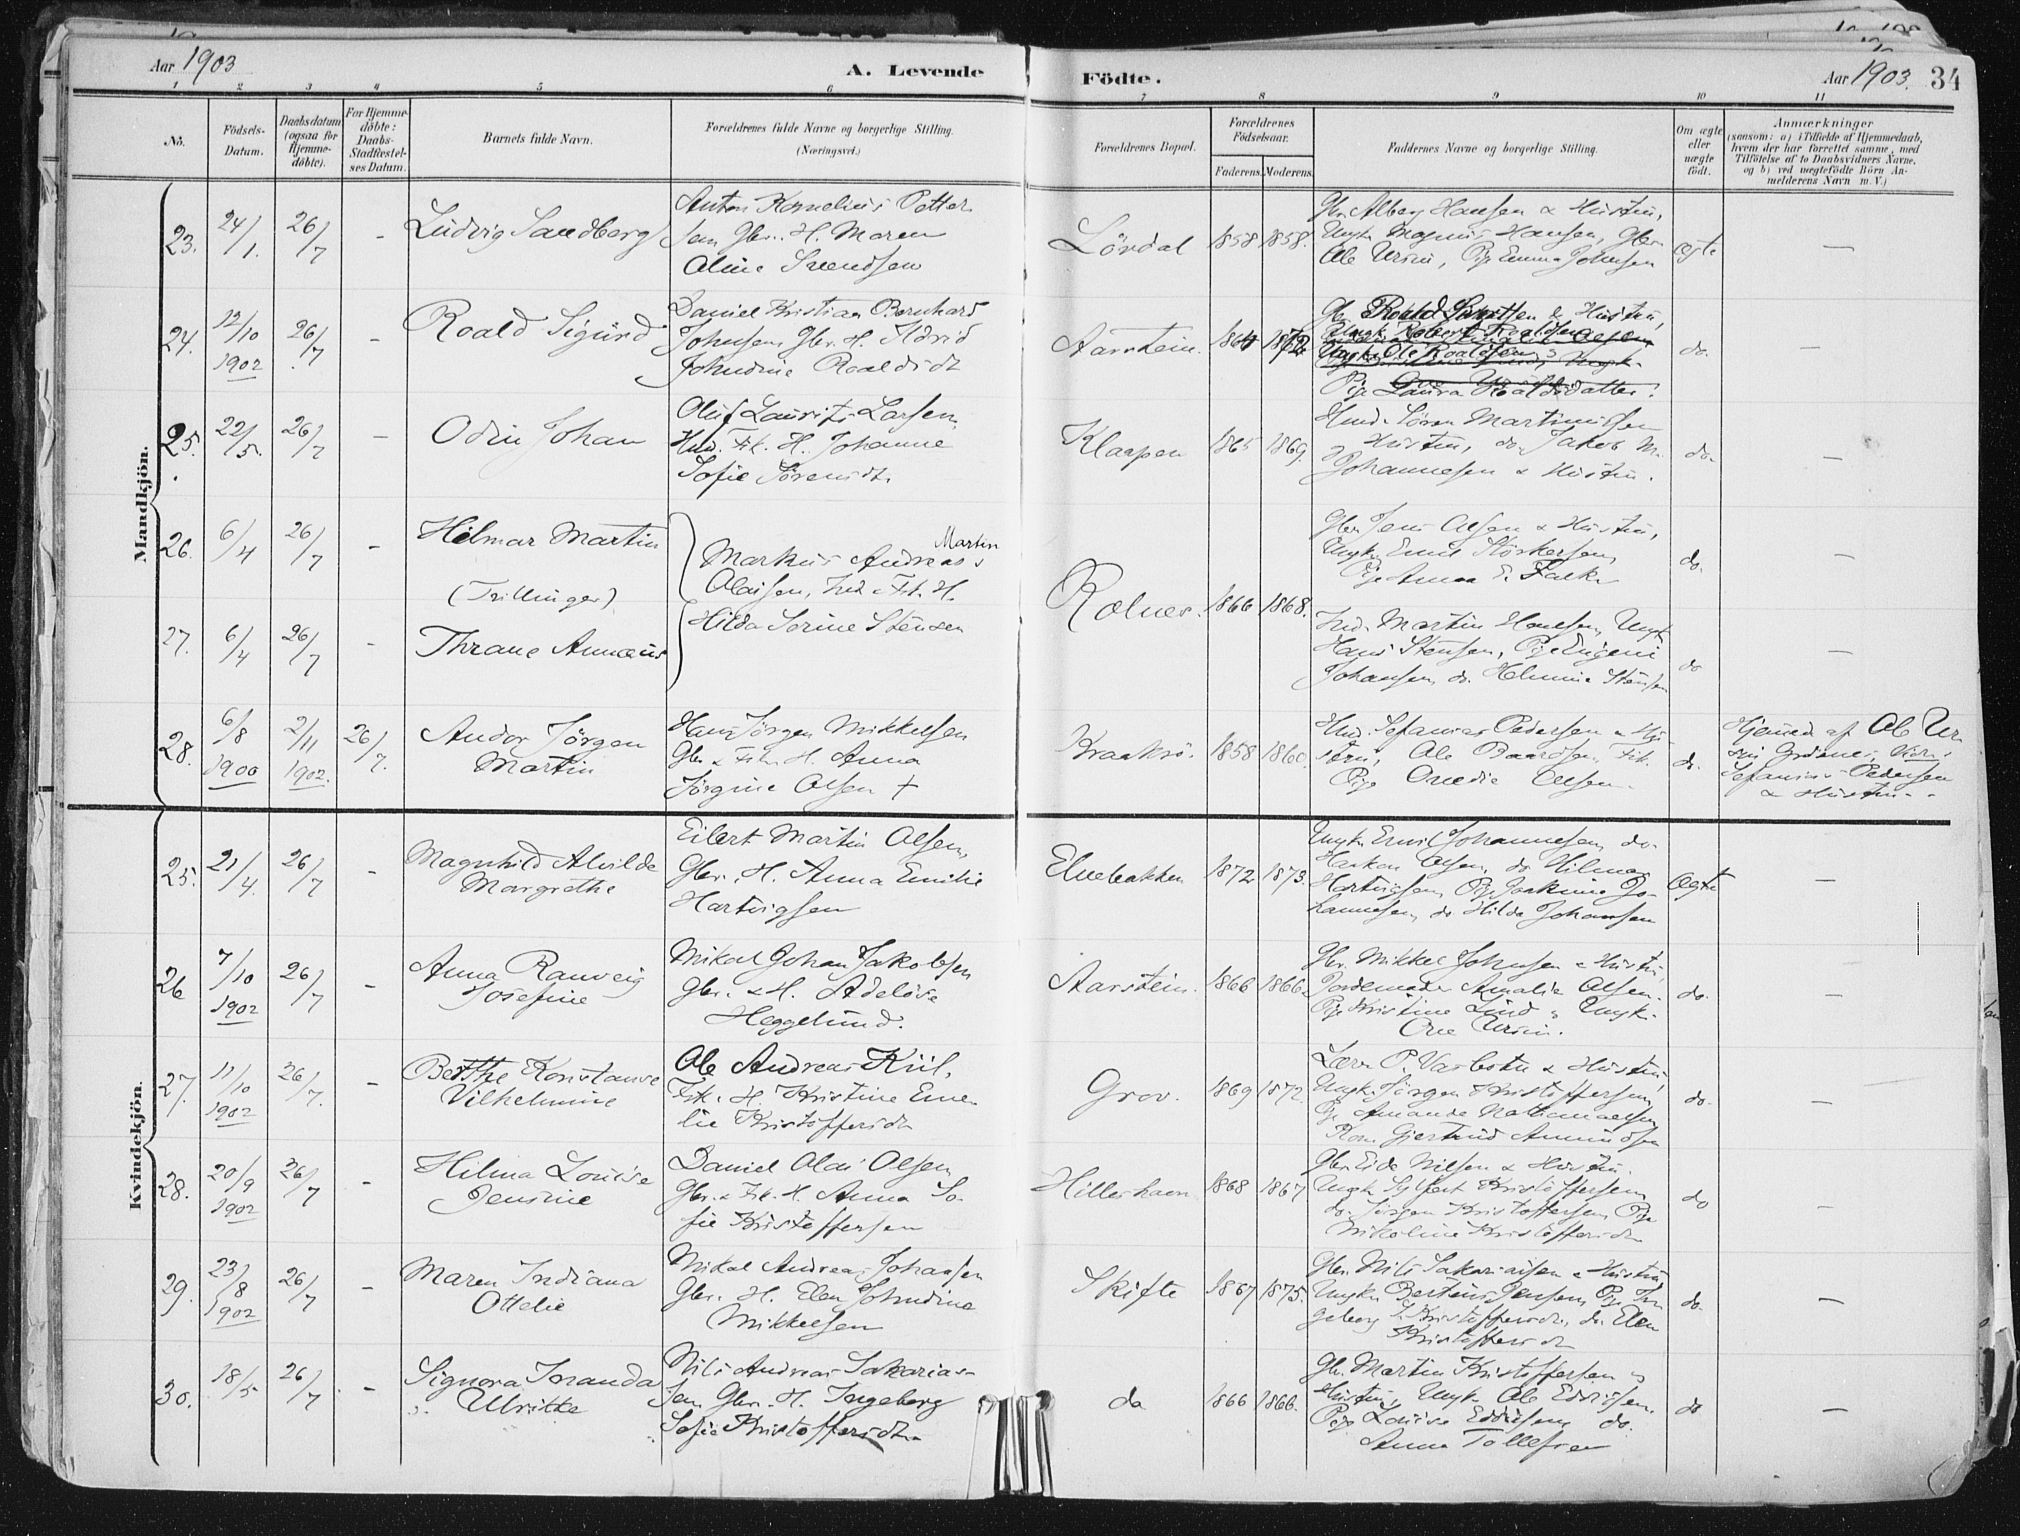 Aar 1903
A. Levende
Födte.
Aar 1903.
34
1 2 3 4 5 6 7 8 9 10 11
No.
Födsels-
Datum.
Daabsdatum
(ogsaa for
Hjemme-
döbte).
For Hjemme-
döbte:
Daabs-
Stadfæstel-
ses Datum.
Barnets fulde Navn.
Forældrenes fulde Navne og borgerlige Stilling.
(Næringsvei.)
Forældrenes Bopæl.
Forældrenes
Födselsaar.
Faderens. Moderens.
Faddernes Navne og borgerlige Stilling.
Om ægte
eller
uægte
födt.
Anmærkninger
(saasom: a) i Tilfælde af Hjemmedaab,
hvem der har forrettet samme, med
Tilföielse af to Daabsvidners Navne,
og b) ved uægtefödte Börn An-
melderens Navn m. V.)
Mandkjön.
23. 24/1. 26/7 - Ludvig Sandberg
Anton Kornelius Petter
sen Gbr. H. Maren
Aline Svendsen
Lövdal 1858 1858.
Gbr. Alberg Hansen & Hustru,
Ungk. Magnus Hansen, Gbr.
Ole Ursin, Pige Emma Johnsen
ægte —
24. 12/10 1902 26/7 - Roald Sigurd
Daniel Kristian Bernhard
Johnsen Gbr. H. Astrid
Johndine Roaldsdt
Aarstein. 1864 1872
& Hustru,
Ungk. Ole Roaldsen
Pige Laura Roaldsdatter.
do. —
25. 22/5. 26/7 - Odin Johan
Oluf Lauritz Larsen,
Hmd. Fisk. H. Johanne
Sofie Sørensdt.
Klaapen 1865 1869.
Hmd. Søren Martinussen
& Hustru, do. Jakob M.
Johannesen & Hustru.
do. —
26. 6/4 26/7 - Hilmar Martin
(Trillinger)
Markus Andreas Martin
Olaisen, Ind. & Fisk. H.
Hilda Serine Stensen
Rolnes. 1866 1868.
Gbr. Jens Olsen & Hustru,
Ungk. Emil Störkersen,
Pige Anna E. Falk
do. —
27. 6/4 26/7 - Thrane Annæus
Ind. Martin Hansen, Ungk.
Hans Stensen, Pige Eugenie
Johansen, do. Helmine Stensen
do —
28. 6/8 1900 2/11 1902. 26/7. Andor Jørgen
Martin
Hans Jørgen Mikkelsen
Gbr. & Fisk. H. Anna
Jørgine Olsen +
Kraakrö. 1858 1860.
Hmd. Sefanias Pedersen & Hu-
stru, Ole Baardsen, Fisk.
Pige Ovedie Olsen.
do.
Hjemmed. af Ole Ur
sin Grötnes, Vidn.:
Sefanias Pedersen
& Hustru.
Kvindekjön.
25. 21/4. 26/7 - Magnhild Alvilde
Margrethe
Eilert Martin Olsen,
Gbr. H. Anna Emilie
Hartvigsen
Elvebakken 1872 1873.
Ungk. Emil Johannesen, do.
Haakon Olsen, do. Hilmar
Hartvigsen, Pige Joakime Jo-
hannesen, do Hilda Johansen
Ægte —
26 7/10 1902 26/7 - Anna Ranveig
Josefine
Mikal Johan Jakobsen
Gbr. & H. Adelöve
Heggelund.
Aarstein. 1866 1866.
Gbr. Mikkel Johnsen & Hustru,
Jordemoder Amalie Olsen.
Pige Kristine Lind, Ungk.
Ove Ursin.
do. —
27. 11/10 1902 26/7. - Berthe Konstanse
Vilhelmine
Ole Andreas Kiil,
Fisk. H. Kristine Eme-
lie Kristoffersdn
Grov. 1869 1872.
Lærer P. Vasbotn & Hustru,
Ungk. Jørgen Kristoffersen,
Pige Amanda Nathanaelsen
Kone Gjertrud Amundsen
do. —
28. 20/9 1902 26/7 - Hilma Louise
Jensine
Daniel Olai Olsen,
Gbr. & Fisk. H. Anna So-
fie Kristoffersen
Hillerhavn 1868 1867
Gbr. Eide Nilsen & Hustru.
Ungk. Sylfert Kristoffersen,
do. Jørgen Kristoffersen, Pige
Nikoline Kristoffersdn
do —
29. 23/8 1902 26/7 - Maren Indiana
Ottelie
Mikal Andreas Johansen
Gbr. H. Elen Johndine
Mikkelsen
Skifte 1867 1875.
Gbr. Nils Sakariassen & Hustru
Ungk. Berteus Jensen, Pige In-
geborg S. Kristoffersdn, do. Elen
Kristoffersdn
do. —
30. 18/5 26/7 - Signora Inanda
Ulrikke
Nils Andreas Sakarias-
sen Gbr. H. Ingeborg
Sofie Kristoffersdn.
do 1866 1866.
Gbr. Martin Kristoffersen &
Hustru, Ungk. Ole Edvisen.
Pige Lovise Edvisen, do.
Anna Tollefsen
do —